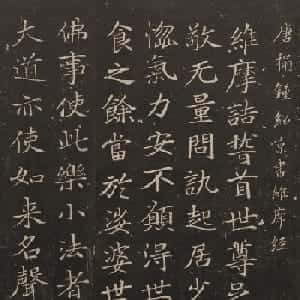 唐搨鍾紹京書維摩經
維摩詰稽首世尊
敬无量問訊起居少
惱氣力安不願得世
食之餘當於娑婆世
佛事使此樂小法者
大道亦使如来名聲